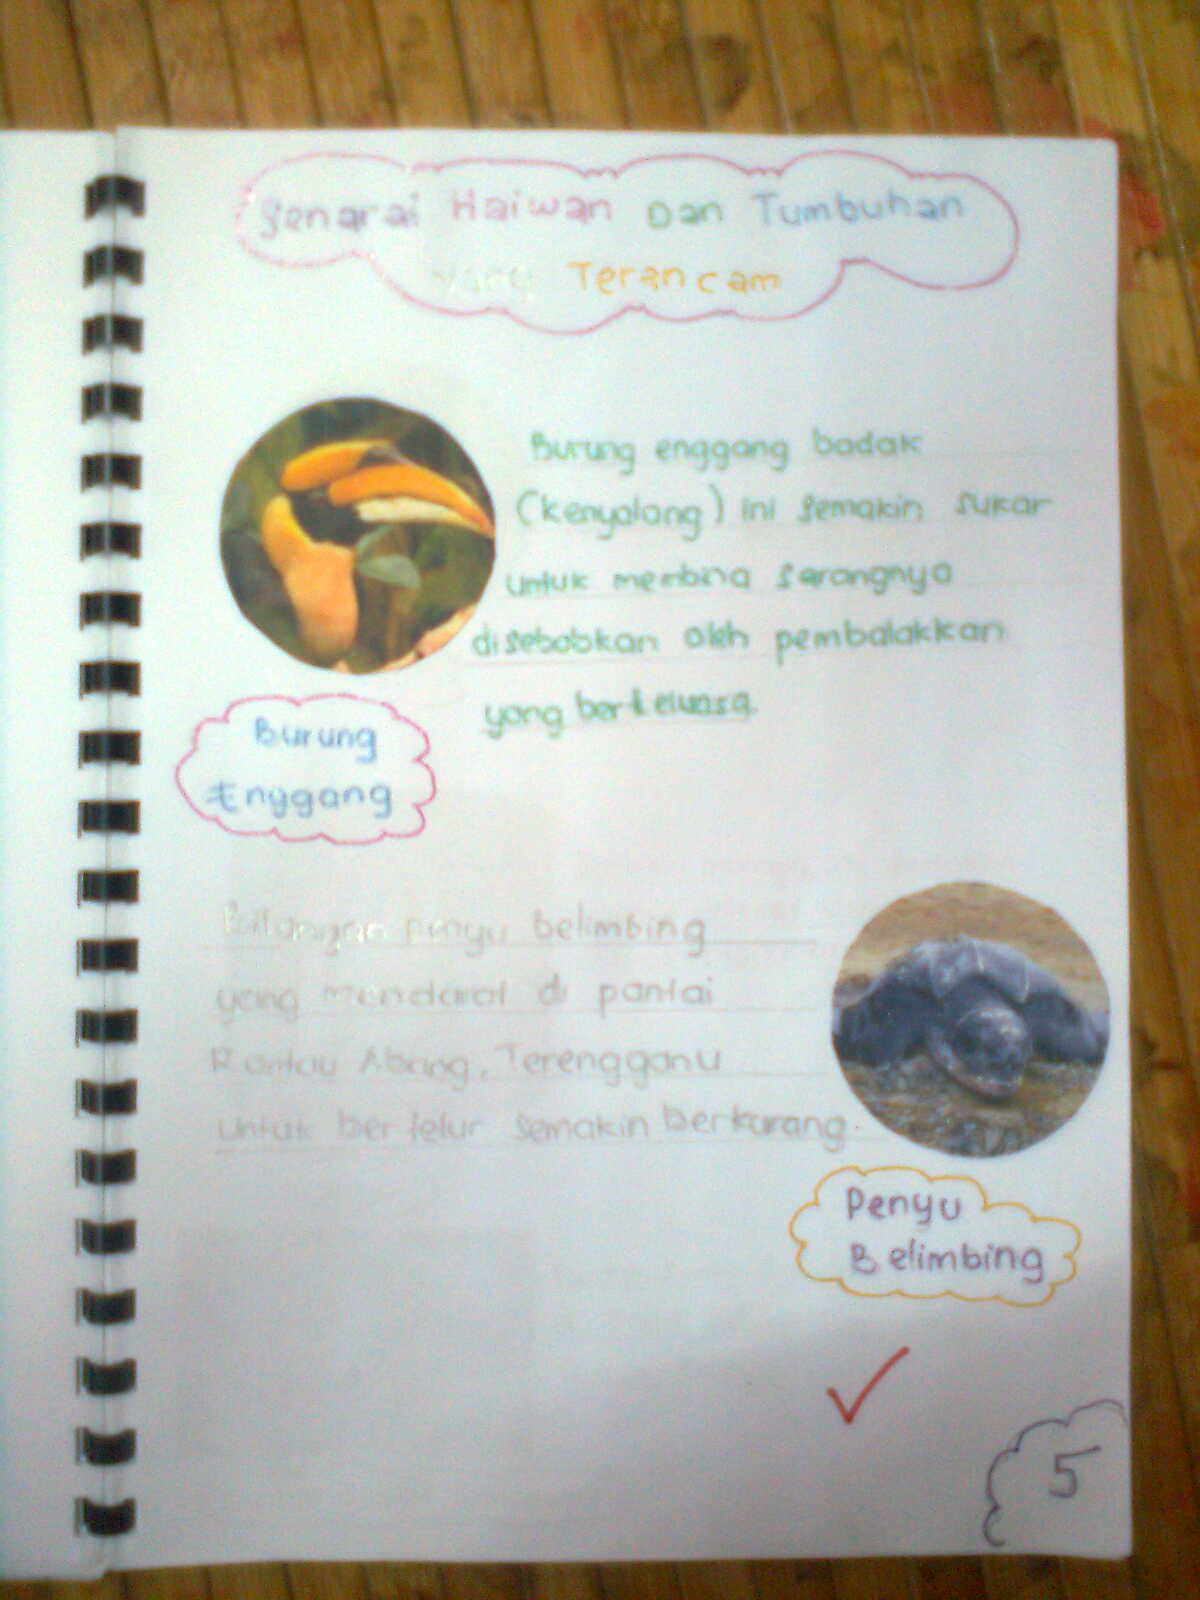 Senarai Haiwan Dan Tumbuhan
Yang Terancam
Burung enggang badak
(kenyalang) ini semakin sukar
untuk membina sarangnya
disebabkan oleh pembalakkan
yang berleluasa.
Burung
Enggang
Bilangan penyu belimbing
yang mendarat di pantai
Rantau Abang, Terengganu
untuk bertelur semakin berkurang.
Penyu
Belimbing
5